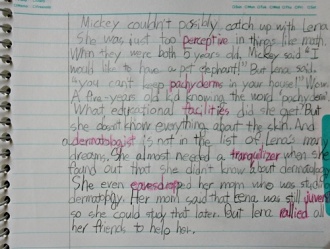 Mickey couldn't possibly catch up with Lena
She was just too perceptive in things like math.
When they were both 5 years old, Mickey said "I
would like to have a pet elephant!" But Lena said,
"you can't keep pachyderms in your house!" Wow!
A five-years old kid knowing the word pachyderm!
What educational facilities did she get? But
she doesn't know everything about the skin. And
a dermatologist is not in the list of Lena's many
dreams. She almost needed a tranquilizer when she
found out that she didn't know about dermatology
She even eavesdropped her mom who was studying
Her mom said that Lena was still
so she could study that later. But Lena rallied all
her friends to help her.